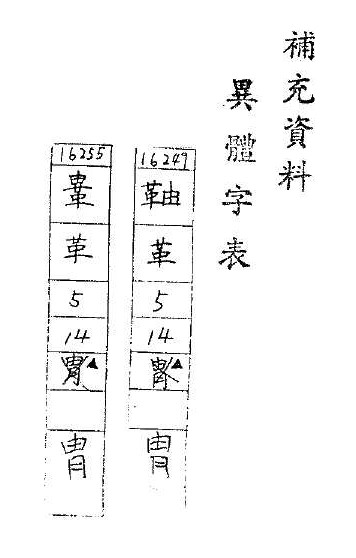 補充資料
異體字表
16249
䩜
革
5
14
▲
冑
16255
革
5
14
▲
冑